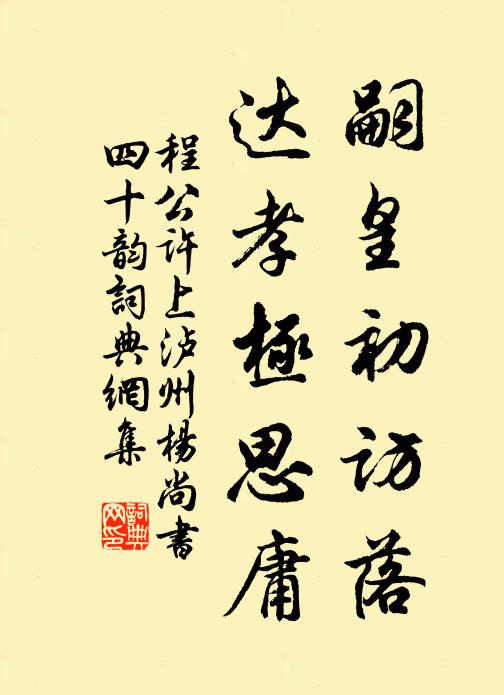 嗣皇初访落
达孝極思庸
程公许上泸州楊尚書
四十韵詞典網集
詞典
网印